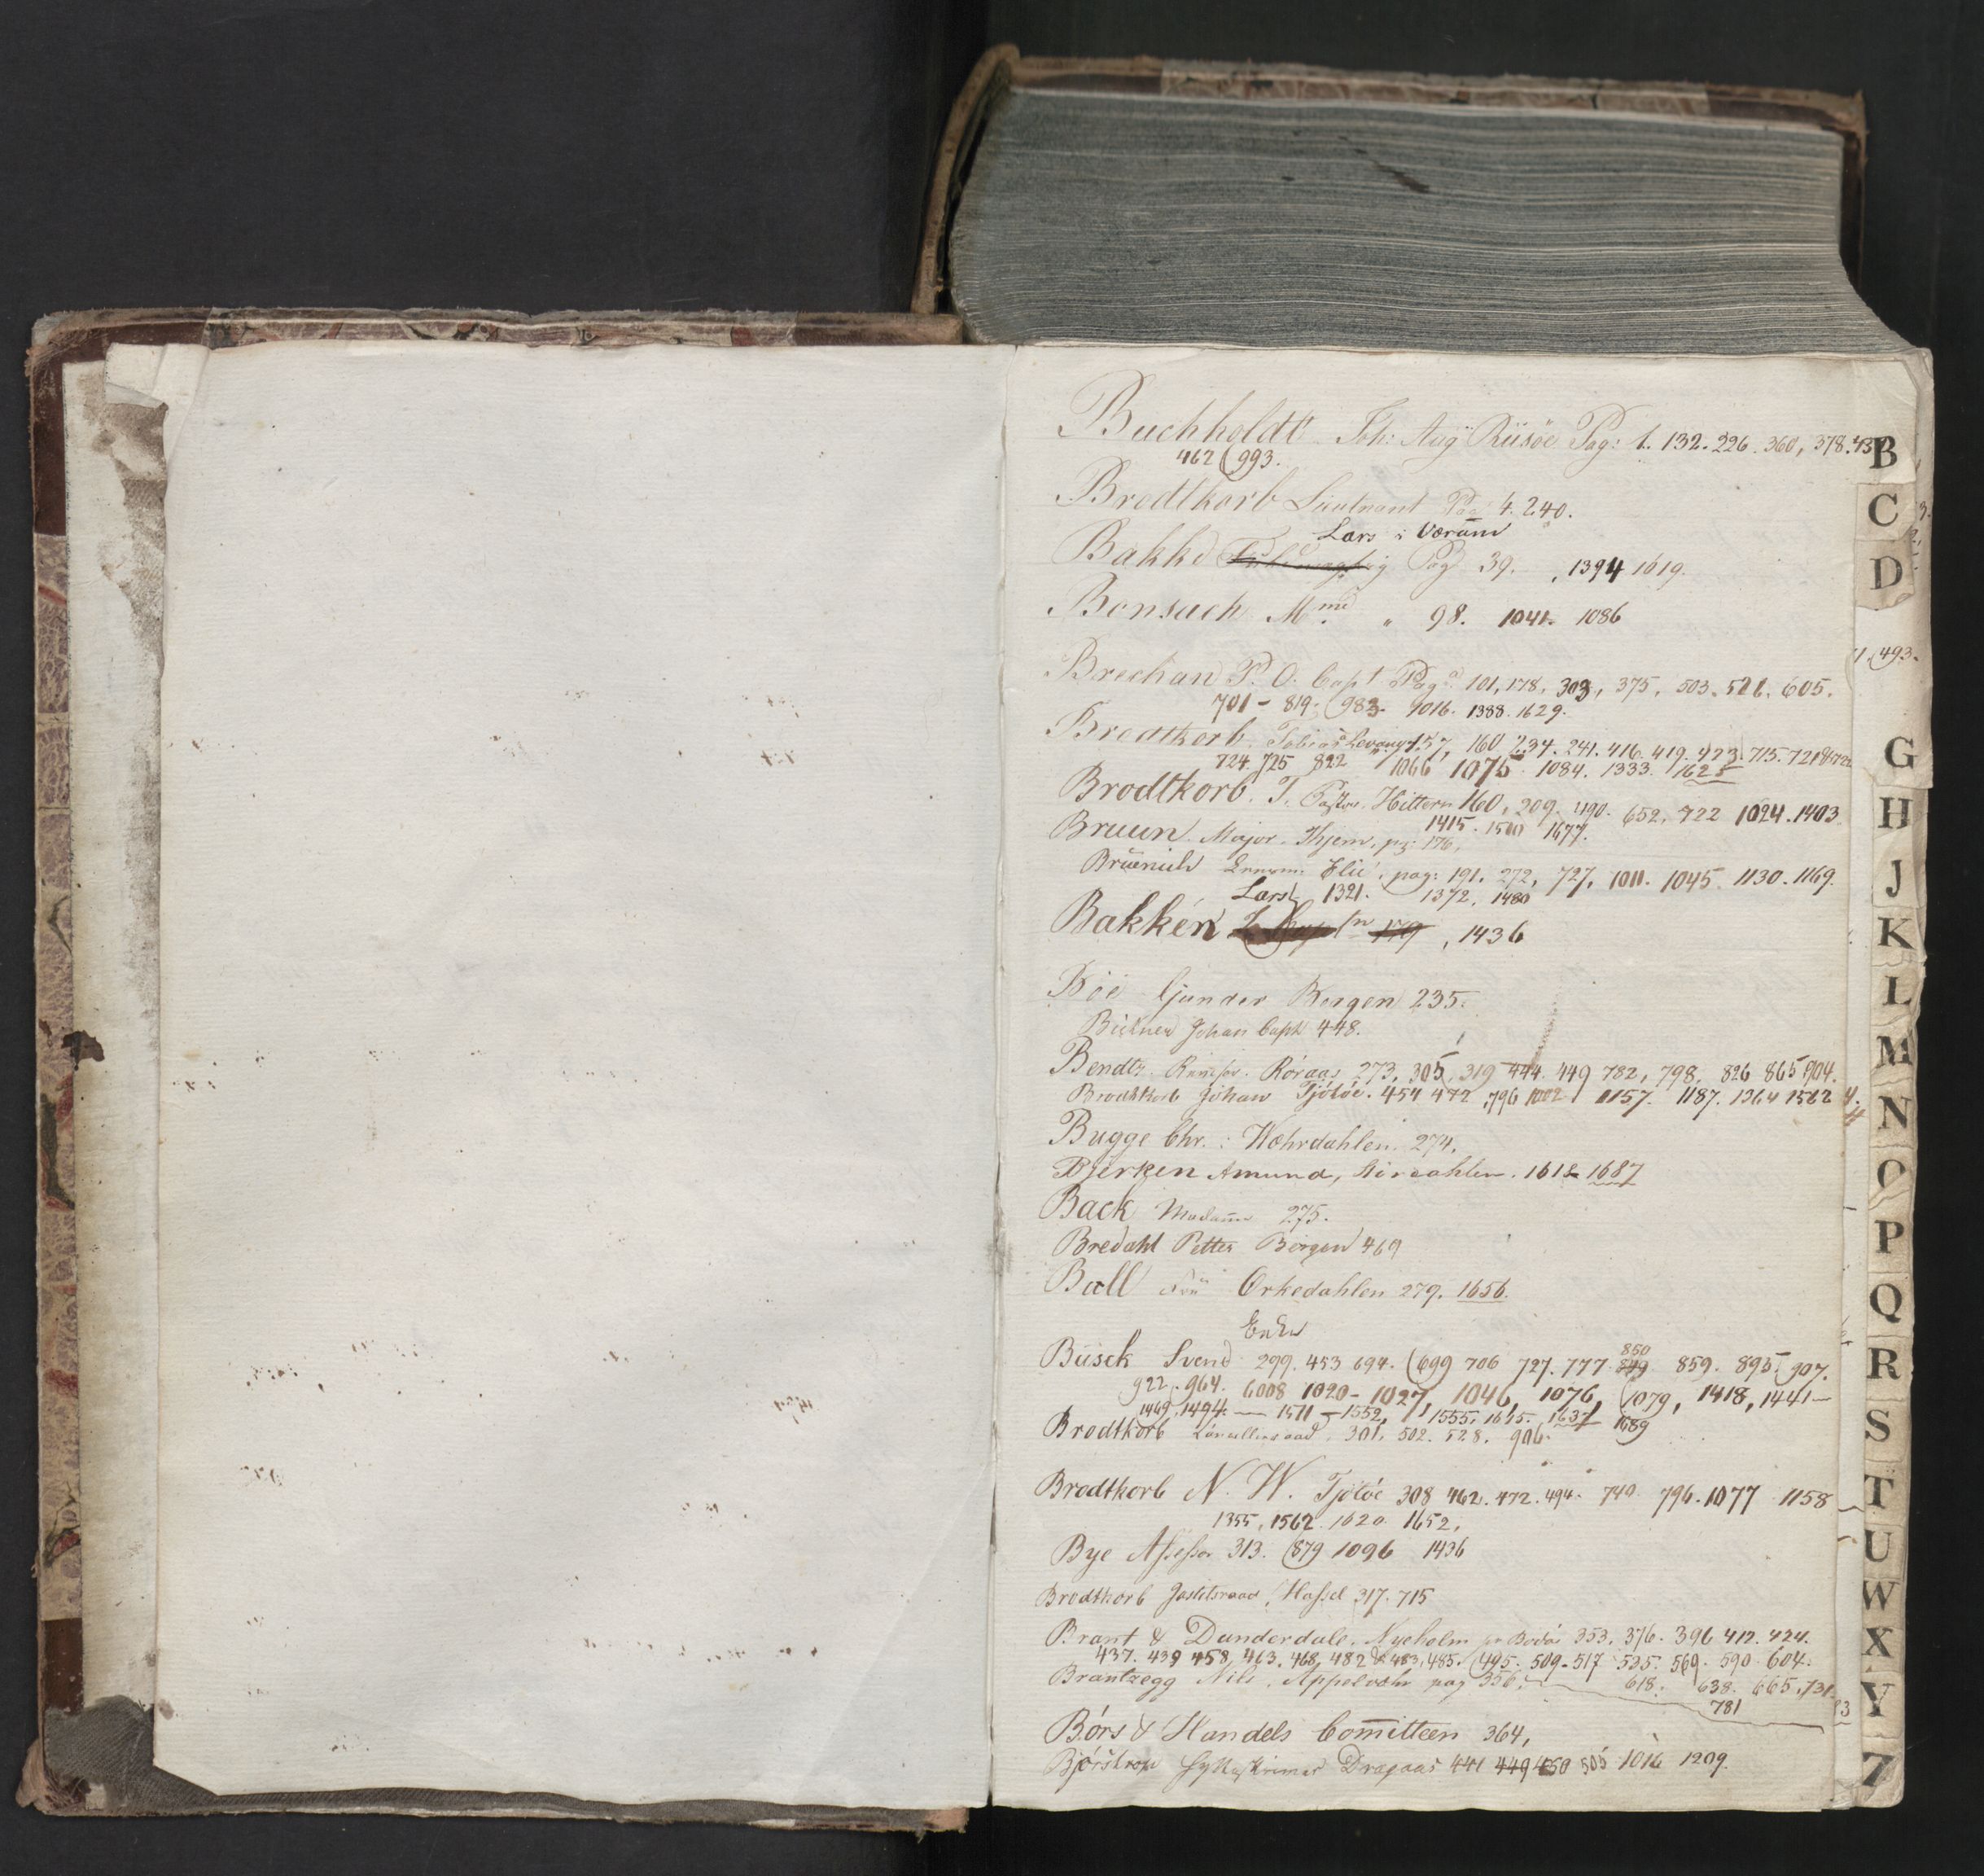 Buchholdt Joh: Aug: Riisöe Pag: 1. 132. 226. 360, 378. 437
462 993.
Brodtkorb Lieutnant Pag 4. 240.
Lars i Værum
Bakke Pag 39. , 1394 1619.
Bonsach Mme " 98. 1041. 1086
Brechan P. O. Capt Pag: 101, 178, 303, 375, 503. 526. 605.
701 - 819. 983. 1016. 1388. 1629.
Brodtkorb. Tobias Levanger 157, 160 234. 241. 416. 419. 473. 715. 721
724. 725 822 1066 1075. 1084. 1333. 1625
Brodtkorb. T. Pastor. Hittern 160, 209. 490. 652, 722 1024. 1403.
1415. 1500 1677.
Bruun. Major. Thjem, pg: 176,
Brüenich Elie, pag: 191. 272, 727, 1011. 1045. 1130. 1169.
Lars 1321. 1372, 1480
Bakken 179 , 1436
Böe Gunder Bergen 235.
Büchner Johan Capt 448.
Bendtz. Röraas 273. 305. 319 444. 449 782, 798. 826 865 904.
Brodtkorb Johan Tjötöe. 454 472 796 1002 1157. 1187. 1364 1562
Bugge Chr. : Wæhrdahlen. 274.
Bjerken Amund, 1618 1687
Back Madame 275.
Bredahl Petter Bergen 469
Ball Orkedahlen 279. 1656.
Enke
Busck Svend 299. 453 694. 699 706 727. 777 849 850 859. 895 907.
922. 964. 6008 1020 - 1027, 1046, 1076, 1079, 1418, 1441 -
1469, 1494. — 1511 - 1552, 1555. 1615. 1637 1689
Brodtkorb Cancelliraad. 301. 502. 528. 906.
Brodtkorb N. W. Tjötöe 308 462. 472. 494. 740 796. 1077 1158
1355, 1562. 1620 1652,
Bye Assessor 313. 879 1096 1436
Brodtkorb Justitsraad, Hassel 317. 715
Brant & Dunderdale. Nyeholm pr Bodöe 353. 376. 396 412. 424.
437. 439 458, 463. 468, 482 & 483, 485. 495. 509 - 517 525. 569. 590 604.
Brantzegg Nils. Appelvær pag 356. 618. 638. 665. 731
781
Börs & Handels Committeen 364,
Björstrop Dragaas 441 449 450 505 1016 1209.
B
C
D
G
H
J
K
L
M
N
O
P
Q
R
S
T
U
W
X
Y
Z
493.